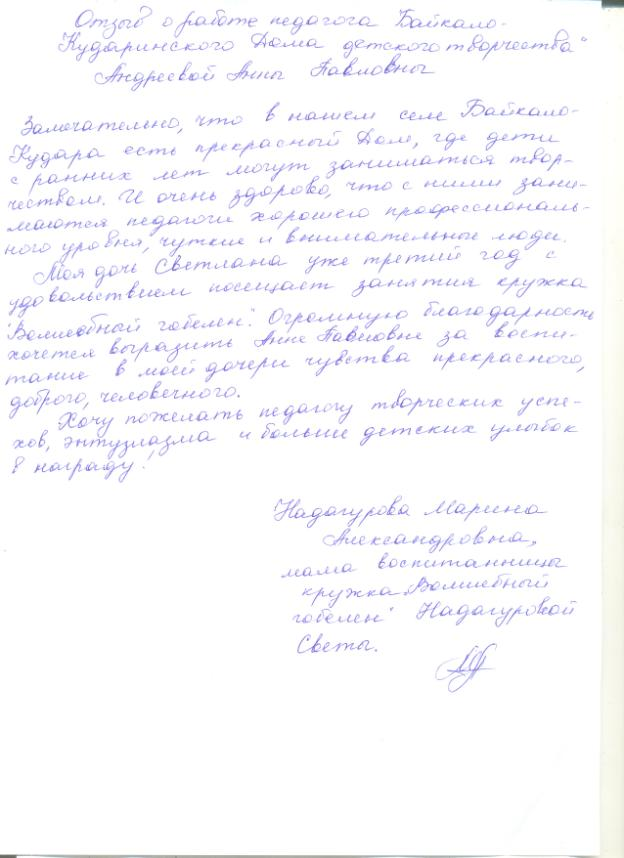 Отзыв о работе педагога Байкало-
Кударинского Дома детского творчества"
Андреевой Анны Павловны
Замечательно, что в нашем селе Байкало-
Кудара есть прекрасный Дом, где дети
с ранних лет могут заниматься твор-
чеством. И очень здорово, что с ними зани-
маются педагоги хорошего профессиональ-
ного уровня, чуткие и внимательные люди.
Моя дочь Светлана уже третий год с
удовольствием посещает занятия кружка
"Волшебный гобелен". Огромную благодарность
хочется выразить Анне Павловне за воспи-
тание в моей дочери чувства прекрасного,
доброго, человечного.
Хочу пожелать педагогу творческих успе-
хов, энтузиазма и больше детских улыбок
в награду!
Надагурова Марина
Александровна,
мама воспитанницы
кружка "Волшебный
гобелен" Надагуровой
Светы.